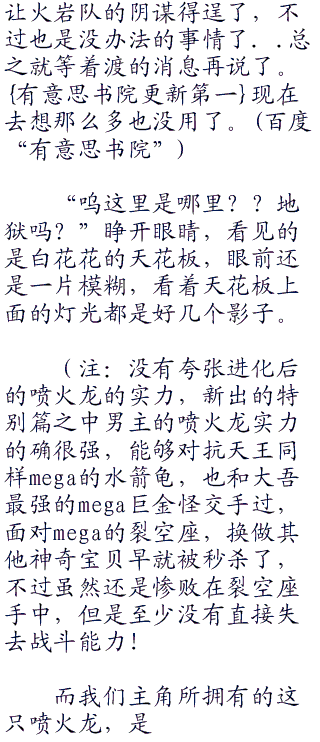 让火岩队的阴谋得逞了，不
过也是没办法的事情了．．总
之就等着渡的消息再说了。
{有意思书院更新第一}现在
去想那么多也没用了。(百度
“有意思书院”)
“呜这里是哪里？？地
狱吗？”睁开眼睛，看见的
是白花花的天花板，眼前还
是一片模糊，看着天花板上
面的灯光都是好几个影子。
（注：没有夸张进化后
的喷火龙的实力，新出的特
别篇之中男主的喷火龙实力
的确很强，能够对抗天王同
样mega的水箭龟，也和大吾
最强的mega巨金怪交手过，
面对mega的裂空座，换做其
他神奇宝贝早就被秒杀了，
不过虽然还是惨败在裂空座
手中，但是至少没有直接失
去战斗能力！
而我们主角所拥有的这
只喷火龙，是